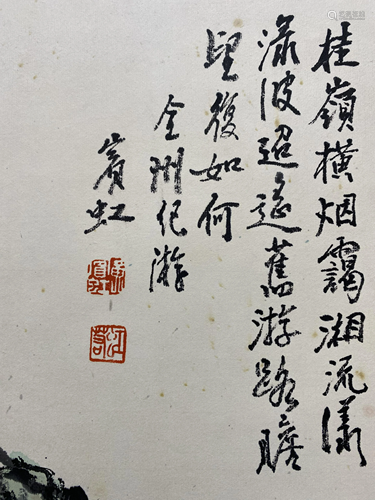 桂嶺橫烟靄湘流漾
淥波迢遙舊游路瞻
望復如何
全州紀游
賓虹